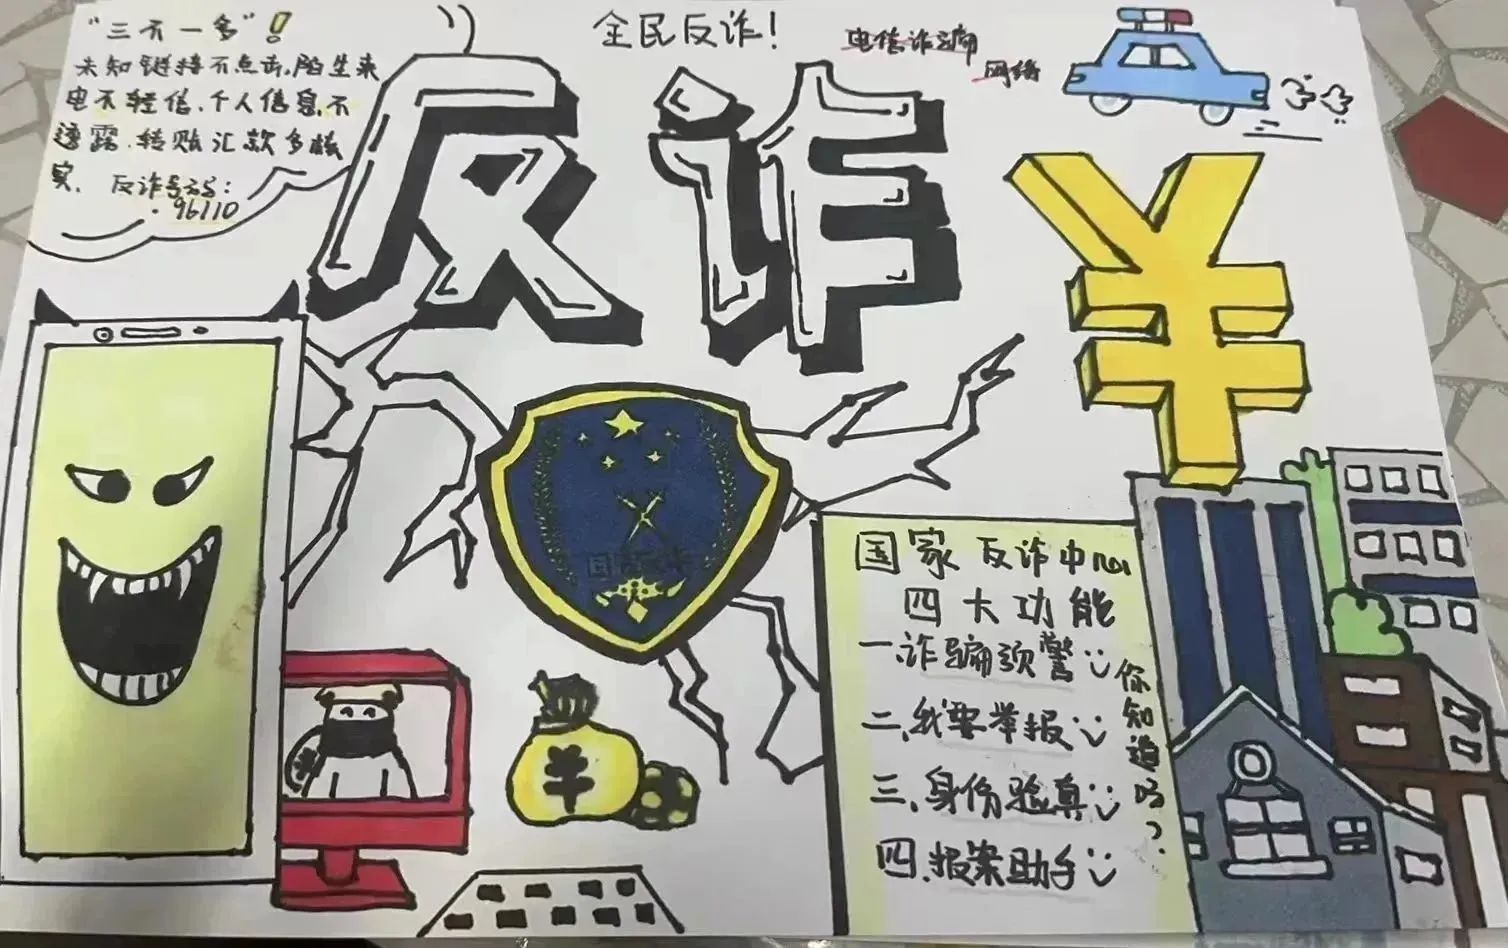 "三不一多"！
未知链接不点击,陌生来
电不轻信、个人信息不
透露、转账汇款多核
实、反诈号码：
·96110
全民反诈！
电信诈骗
网络
反诈
¥
国家反诈中心
四大功能
一、诈骗预警
二、我要举报
三、身份验真
四、报案助手
你知道吗？
¥